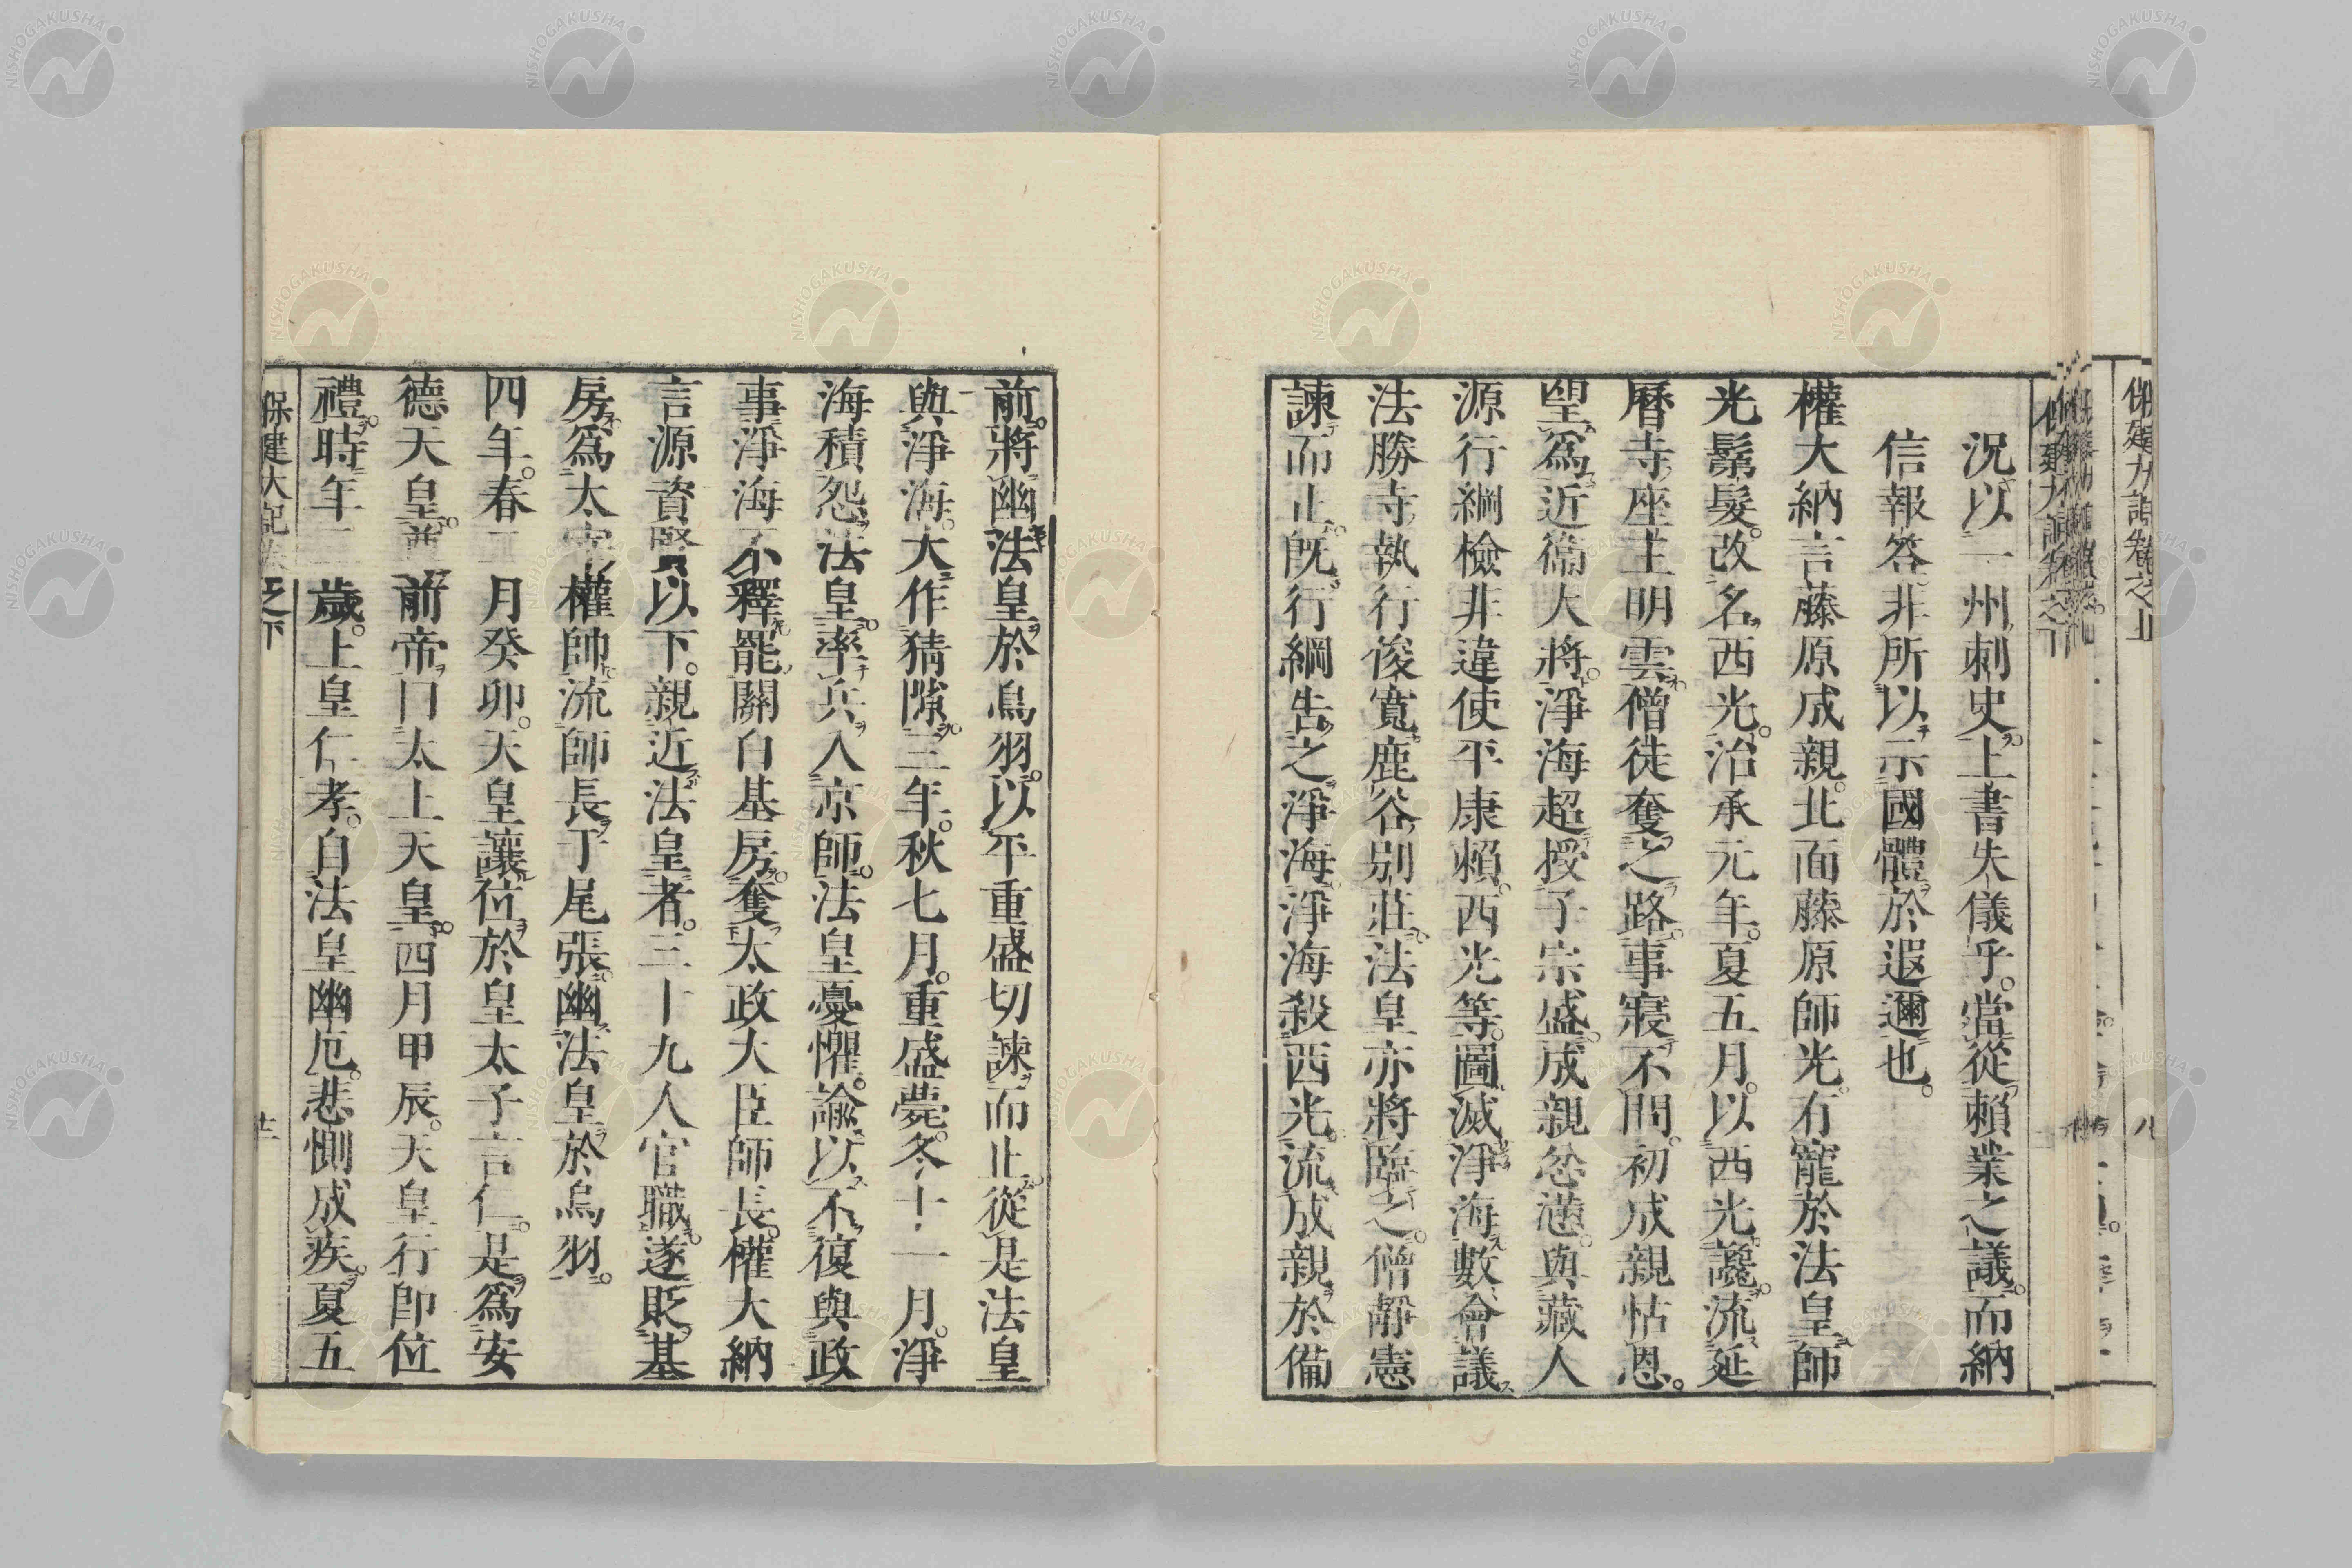 況以一州刺史上書失儀乎當從賴業之議而納
信報答非所以示國體於遐邇也
權大納言藤原成親北面藤原師光有寵於法皇師
光鬋髮改名西光治承元年夏五月以西光讒流延
曆寺座主明雲僧徒奪之路事寢不問初成親怙恩
望爲近衞大將淨海超授子宗盛成親忿懣與藏人
源行綱檢非違使平康賴西光等圖滅淨海數會議
法勝寺執行俊寬鹿谷別莊法皇亦將臨之僧靜憲
諫而止旣行綱告之淨海淨海殺西光流成親於備
前將幽法皇於鳥羽以平重盛切諫而止從是法皇
與淨海大作猜隙三年秋七月重盛薨冬十一月淨
海積怨法皇率兵入京師法皇憂懼諭以不復與政
事淨海不釋罷關白基房奪太政大臣師長權大納
言源資賢以下親近法皇者三十九人官職遂貶基
房爲太宰權帥流師長于尾張幽法皇於鳥羽
四年春二月癸卯天皇讓位於皇太子言仁是爲安
德天皇尊前帝曰太上天皇四月甲辰天皇行卽位
禮時年三歲上皇仁孝自法皇幽厄悲惻成疾夏五
保建大記卷之下
NISHOGAKUSHA